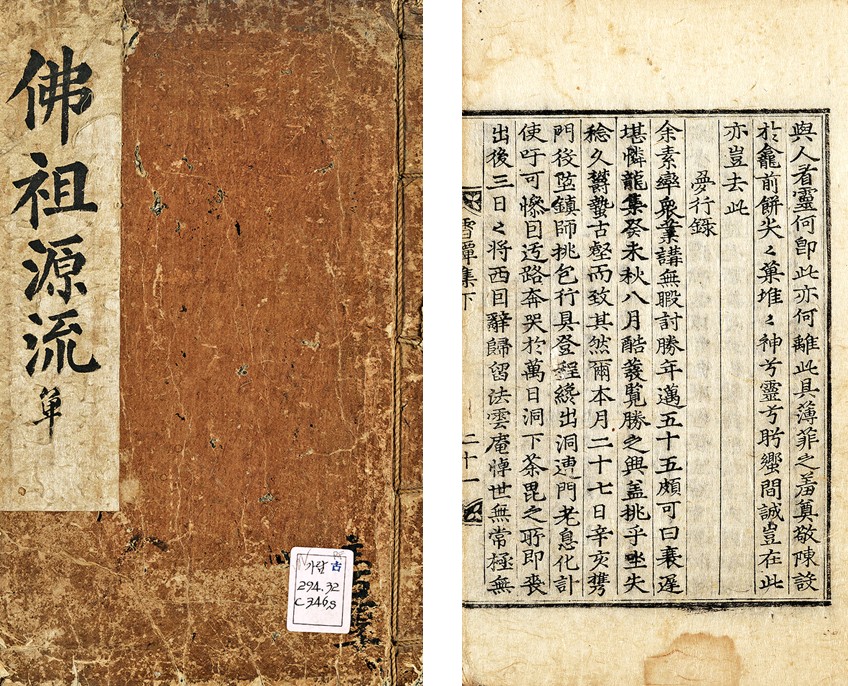 佛祖源流 單
가람 古
294.32
C346s
與人看靈何卽此亦何離此具薄菲之羞奠敬陳設
於龕前餠尖〻菓堆〻神兮靈兮肹蠁間誠豈在此
亦豈去此
夢行錄
余素率衆業講無暇討勝年邁五十五頗可曰衰遲
堪憐龍集癸未秋八月酷羨覧勝之興盖挑乎坐失
稔久欝蟄古壑而致其然爾本月二十七日辛亥携
門後堅鎭師挑包行具登程纔出洞遭門老息化計
使吁可慘回迃路奔哭於萬日洞下茶毘之所即喪
出後三日〻将西曰辭歸留法雲庵悼世無常極無
雪潭集下
二十一